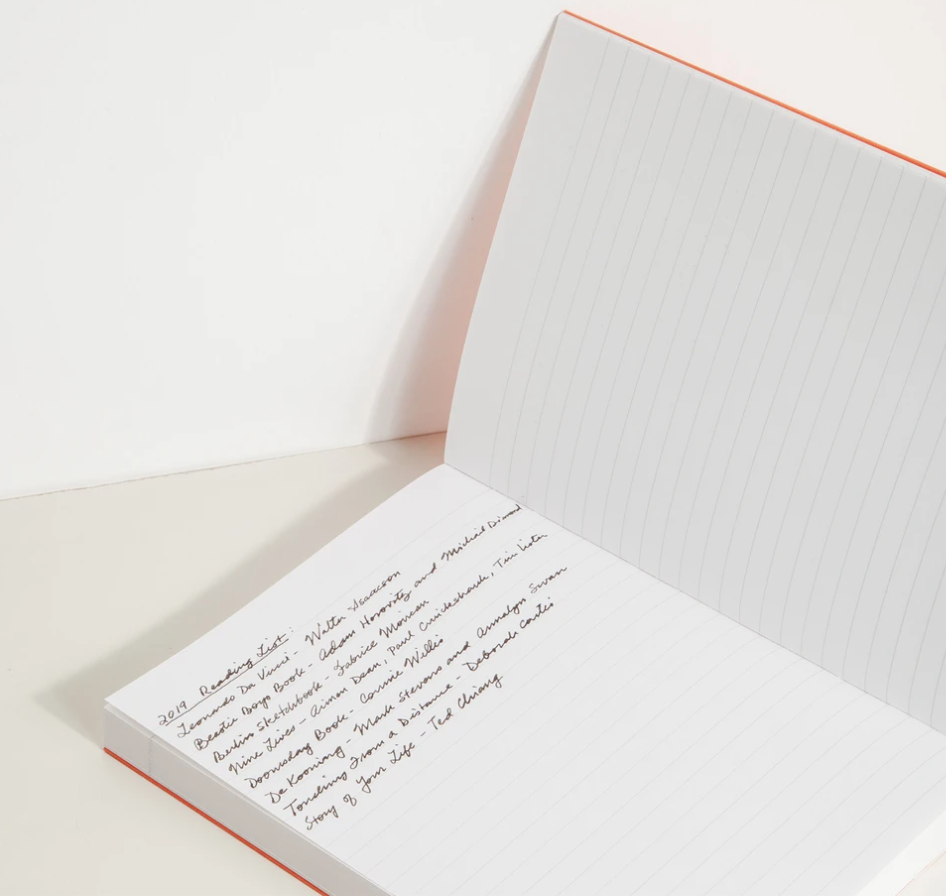 2019 Reading List:
Leonardo Da Vinci - Walter Isaacson
Beastie Boys Book - Adam Horovitz and Michael Diamond
Berlin Sketchbook - Fabrice Moireau
Nine Lives - Aimen Dean, Paul Cruickshank, Tim Lister
Doomsday Book - Connie Willis
De Kooning - Mark Stevens and Annalyn Swan
Touching From a Distance - Deborah Curtis
Story of Your Life - Ted Chiang